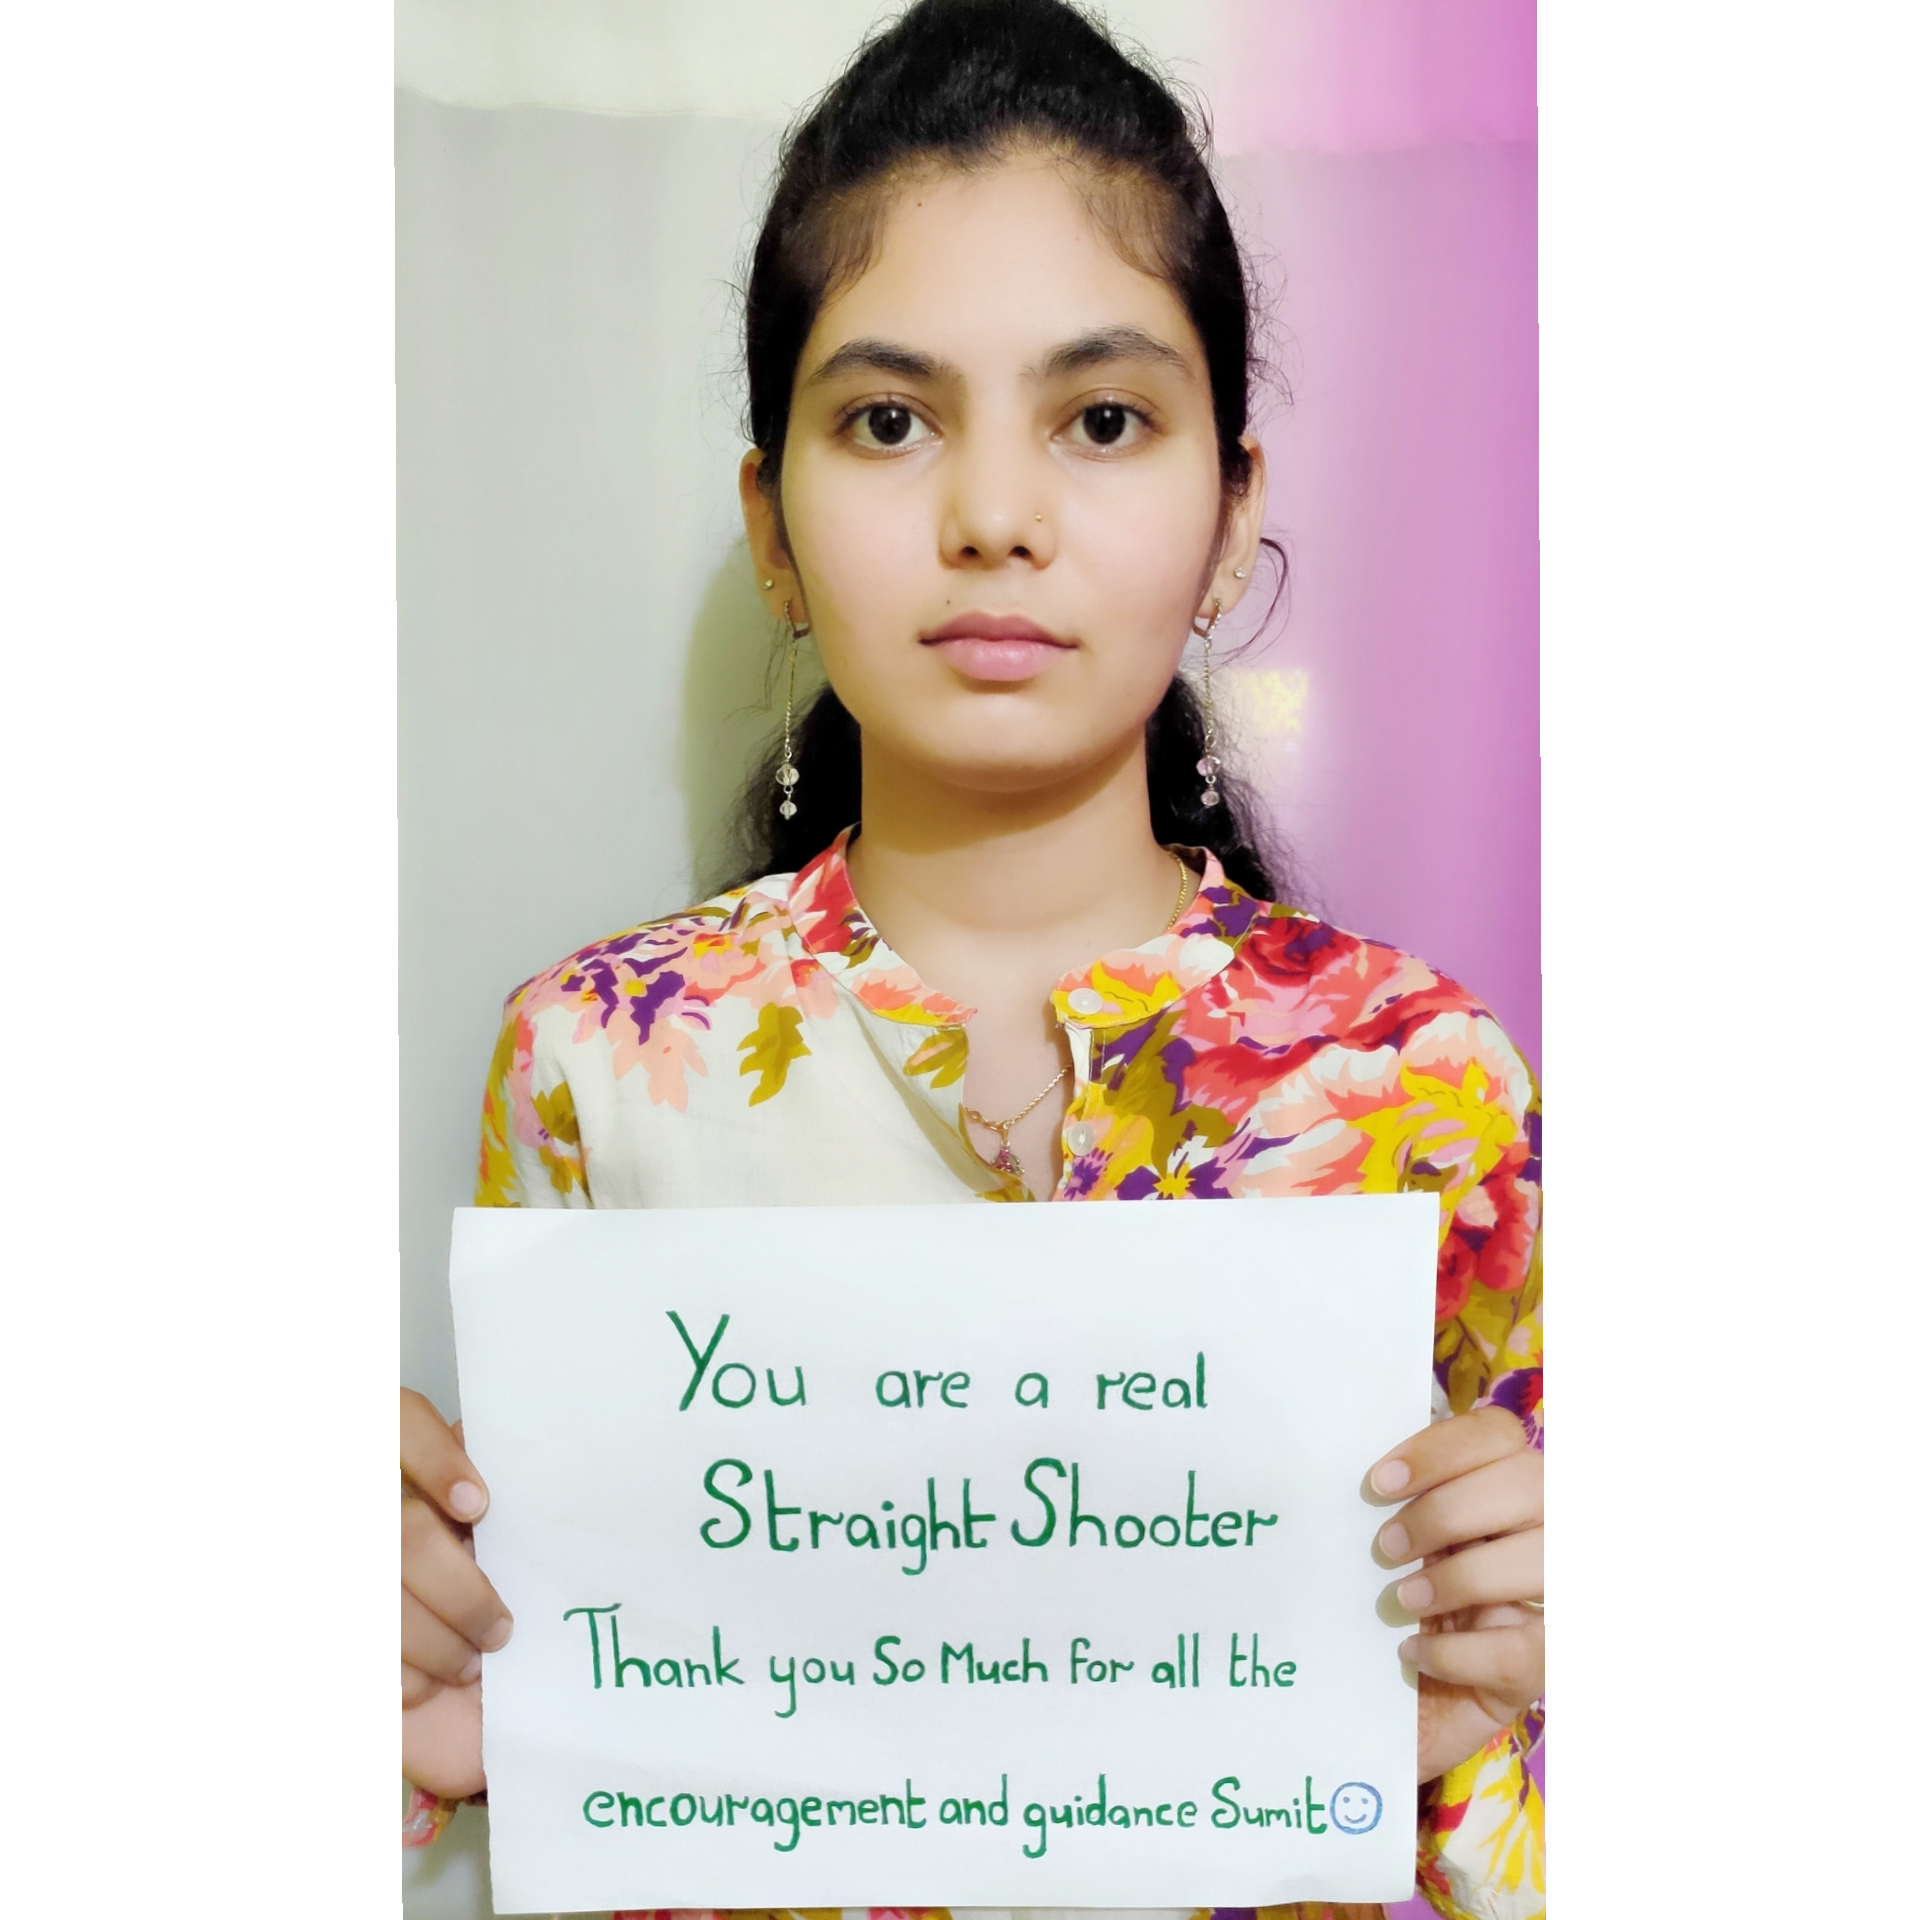 You are a real
Straight Shooter
Thank you So Much for all the
encouragement and guidance Sumit☺